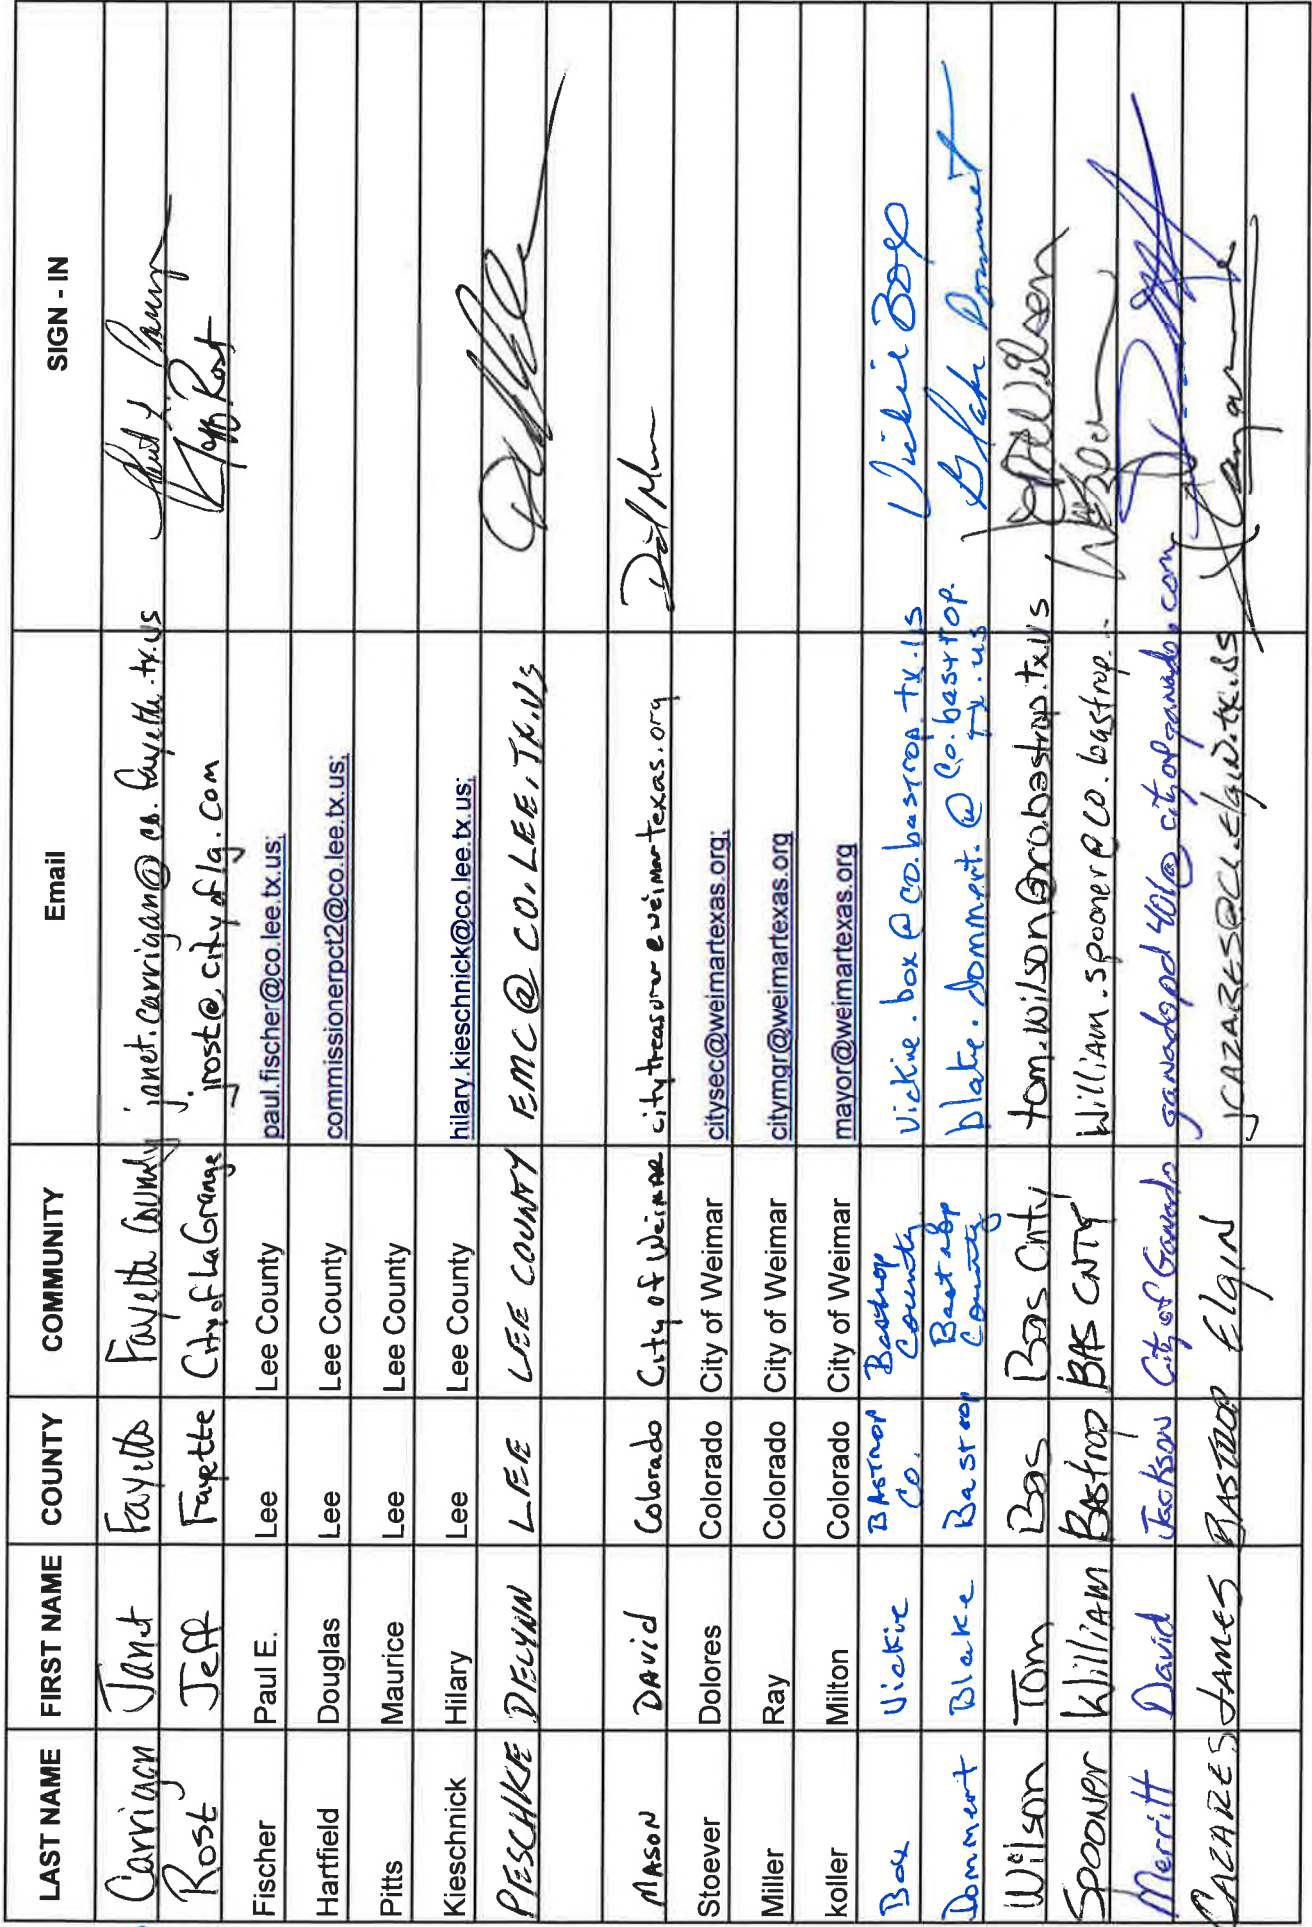 LAST NAME FIRST NAME COUNTY COMMUNITY Email SIGN - IN
Carrigan Janet Fayette Fayette County janet.carrigan@co.fayette.tx.us
Rost Jeff Fayette City of LaGrange jrost@cityoflg.com Jeff Rost
Fischer Paul E. Lee Lee County paul.fischer@co.lee.tx.us;
Hartfield Douglas Lee Lee County commissionerpct2@co.lee.tx.us;
Pitts Maurice Lee Lee County
Kieschnick Hilary Lee Lee County hilary.kieschnick@co.lee.tx.us;
PIESCHKE DELYNN LEE LEE COUNTY EMC@CO.LEE.TX.US
MASON DAVID Colorado City of WEIMAR citytreasurer@weimartexas.org
Stoever Dolores Colorado City of Weimar citysec@weimartexas.org;
Miller Ray Colorado City of Weimar citymgr@weimartexas.org
koller Milton Colorado City of Weimar mayor@weimartexas.org
Box Vickie BASTROP Co. Bastrop County vickie.box@co.bastrop.tx.us Vickie Box
Dommert Blake Bastrop Bastrop County blake.dommert.@co.bastrop.tx.us Blake Dommert
Wilson Tom Bas Bas Cnty tom.wilson@co.bastrop.tx.us
Spooner William Bastrop BAS CNTY William.spooner@co.bastrop...
Merritt David Jackson City of Ganado ganadopd401@cityofganado.com
CAZARES JAMES BASTROP Elgin JCAZARES@CI.ElgiN.TX.US